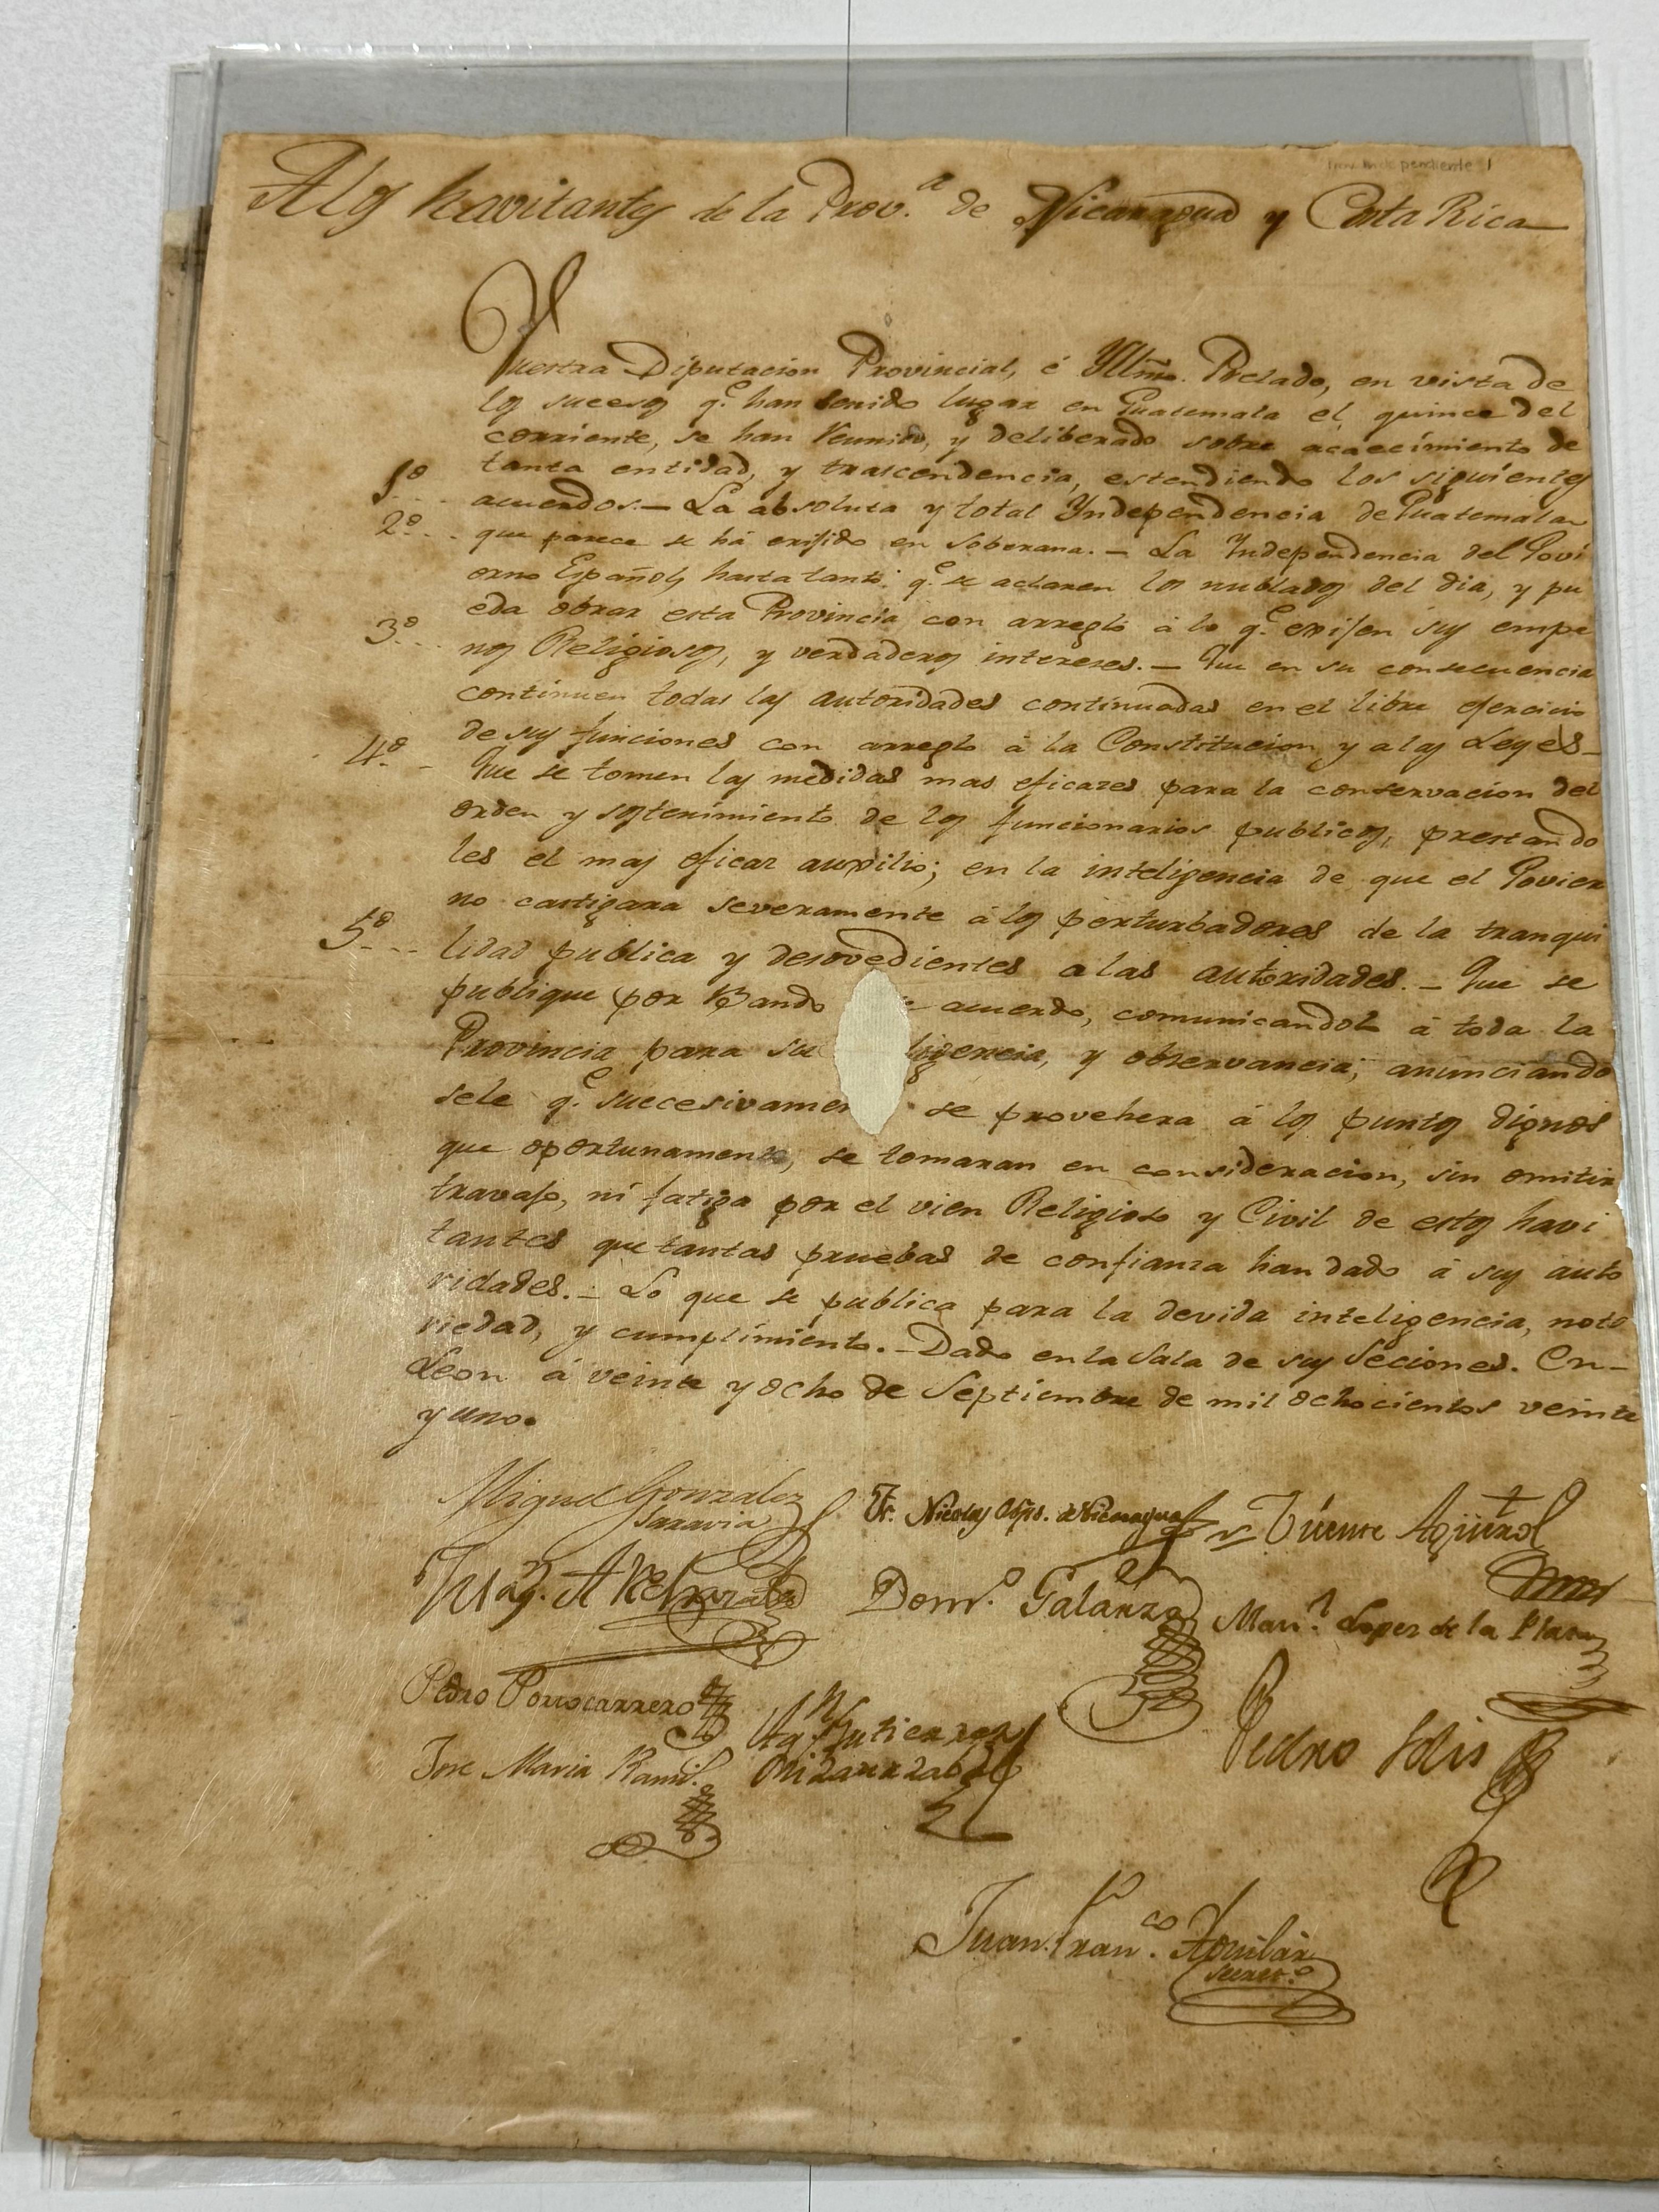 A los havitantes de la Prov.a de Nicaragua y Costa Rica
Vuestra Diputacion Provincial, é Yllmo. Prelado, en vista de
los sucesos q.e han tenido lugar en Guatemala el quince del
corriente, se han reunido, y deliberado sobre acaecimiento de
tanta entidad, y trascendencia, estendiendo los siguientes
1.o acuerdos.— La absoluta y total Yndependencia de Guatemala
2.o que parece se há erijido en soberana.— La Independencia del Govi
erno Español, hasta tanto q.e se aclaren los nublados del dia, y pu
eda obrar esta Provincia con arreglo á lo q.e exijen sus empe
3.o nos Religiosos, y verdaderos intereses.— Que en su consecuencia
continuen todas las autoridades continuadas en el libre ejercicio
de sus funciones con arreglo á la Constitucion y a las Leyes—
4.o Que se tomen las medidas mas eficazes para la conservacion del
orden y sostenimiento de los funcionarios publicos, prestando
les el mas eficaz auxilio; en la inteligencia de que el Govier
no castigara severamente á los perturbadores de la tranqui
5.o lidad publica y desovedientes a las autoridades.— Que se
publique por Bando acuerdo, comunicandolo á toda la
Provincia para su ligencia, y observancia; anunciando
sele q.e succesivamen se provehera á los puntos dignos
que oportunamente, se tomaran en consideracion, sin omitir
travajo, ni fatiga por el vien Religioso y Civil de estos havi
tantes que tantas pruebas de confianza han dado á sus auto
ridades.— Lo que se publica para la devida inteligencia, noto
riedad, y cumplimiento.— Dado en la Sala de sus Seciones. En—
Leon á veinte y ocho de Septiembre de mil ochocientos veinte
y uno.
Miguel Gonzalez
Saravia
Fr. Nicolas Obpo. de Nicaragua
Vicente Agüero
Domo. Galarza
Man.l Lopez de la Plata
Pedro Portocarrero
Ag.n Gutierrez
Lizaurzabal
Pedro Solis
Jose Maria Rami.
Juan Fran.co Aguilar
Secret.o